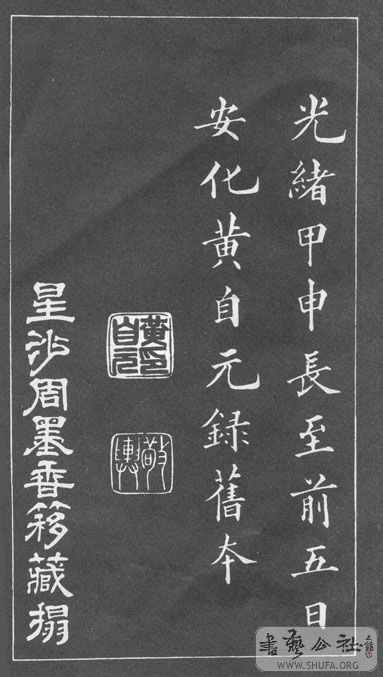 光緒甲申長至前五日
安化黃自元錄舊本
黃自元印
敬輿
星沙周墨香簃藏搨
書藝公社
WWW.SHUFA.ORG